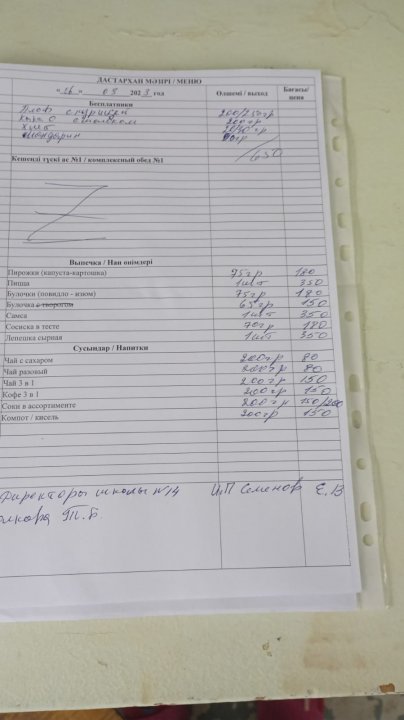 ДАСТАРХАН МӘЗІРІ / МЕНЮ
"26" 09 2023 год Өлшемі / выход Бағасы/ цена
Бесплатники
Плов с курицей 200/250гр
Какао с молоком 200гр
Хлеб 20/40 гр
мандарин
/650
Кешенді түскі ас №1 / комплексный обед №1
Выпечка / Нан өнімдері
Пирожки (капуста-картошка) 75гр 180
Пицца 1шт 350
Булочки (повидло - изюм) 75гр 180
Булочка с творогом 65гр 150
Самса 1шт 350
Сосиска в тесте 70гр 180
Лепешка сырная 1шт 350
Сусындар / Напитки
Чай с сахаром 200гр 80
Чай разовый 200гр 80
Чай 3 в 1 200гр 150
Кофе 3 в 1 200гр 150
Соки в ассортименте 200гр 150/200
Компот / кисель 200гр 150
Директоры школы №14 ИП Семенов Е.В
Т.Б